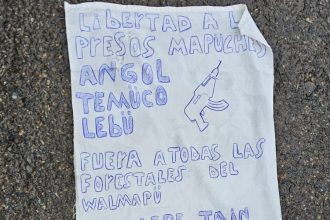 LIBERTAD A L
PRESOS MAPUCHES
ANGOL
TEMUCO
LEBÜ
FUERA A TODAS LAS
FORESTALES DEL
WALMAPÜ